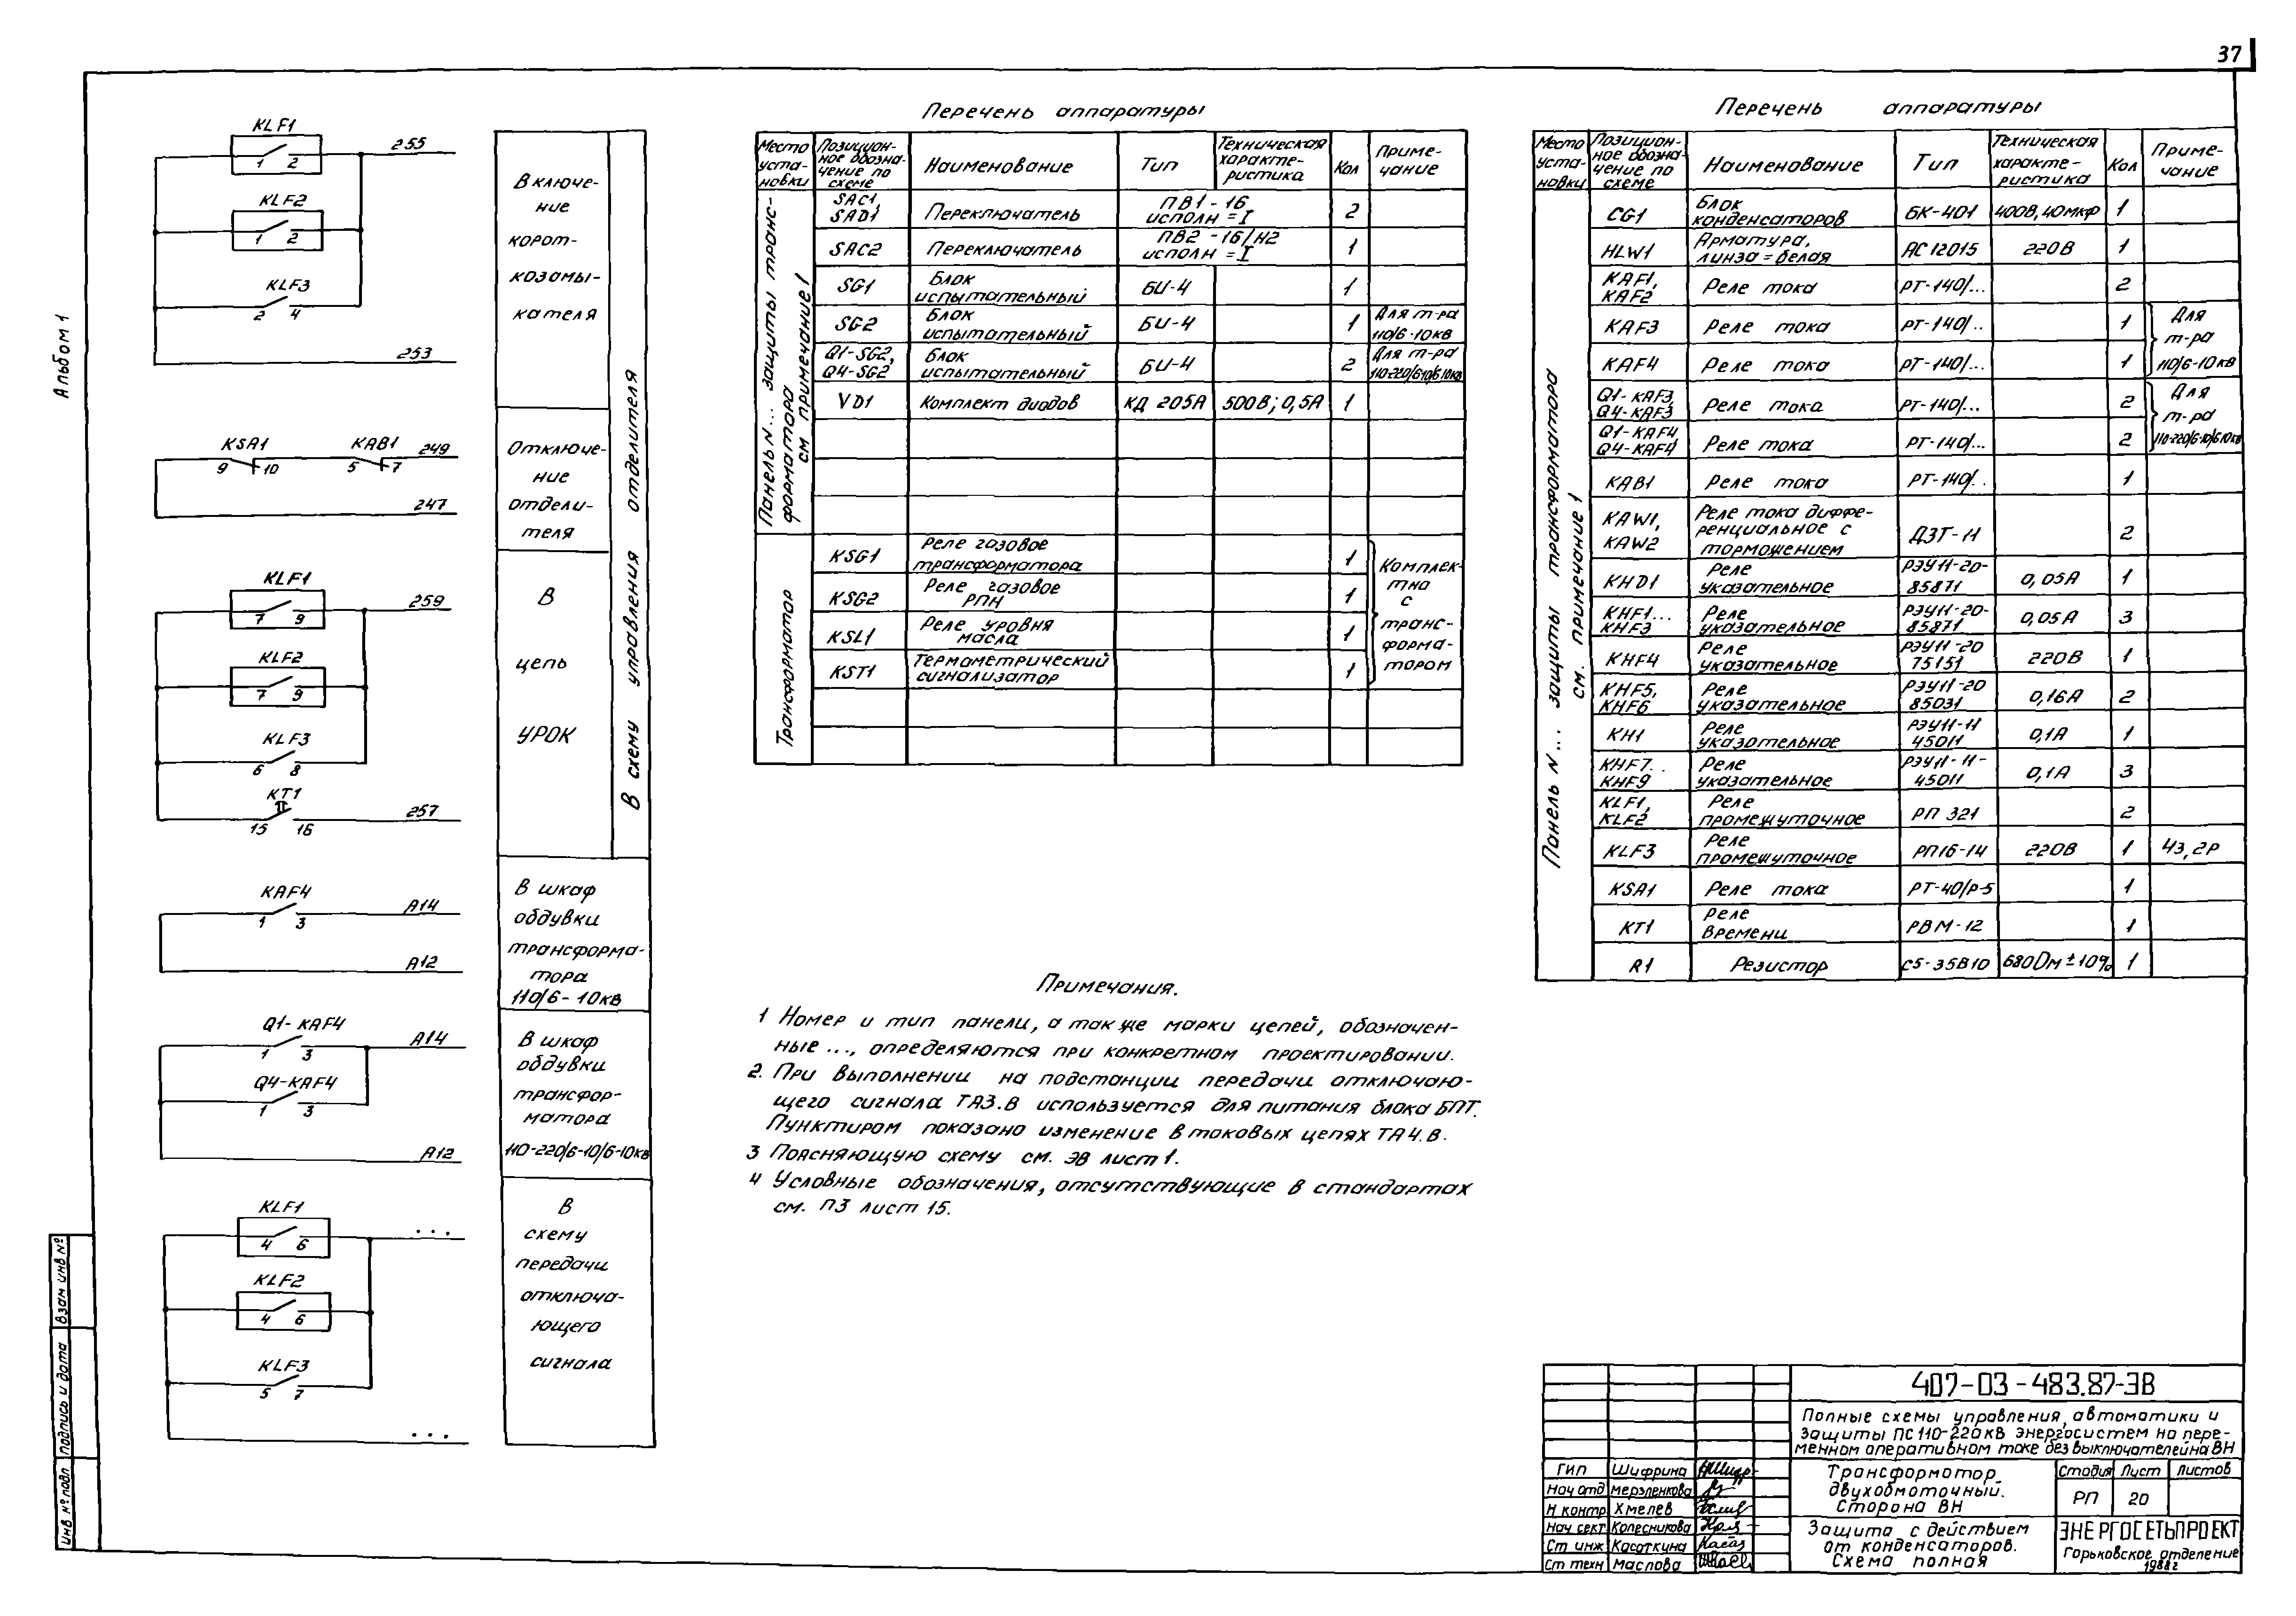 37
Альбом 1
KLF1
1 2
255
KLF2
1 2
KLF3
2 4
253
Включе-
ние
корот-
козамы-
кателя
KSA1
9 10
KAB1
5 7
249
247
Отключе-
ние
отдели-
теля
KLF1
7 9
259
KLF2
7 9
KLF3
6 8
KT1
15 16
257
В
цепь
УРОК
В схему управления отделителя
KAF4
1 3
A14
A12
В шкаф
обдувки
трансформа-
тора
110/6-10кв
Q1-KAF4
1 3
A14
Q4-KAF4
1 3
A12
В шкаф
обдувки
трансфор-
матора
110-220/6-10/6-10кв
KLF1
4 6
...
KLF2
4 6
KLF3
5 7
...
В
схему
передачи
отключа-
ющего
сигнала
Перечень аппаратуры
Место установки | Позицион-ное обозна-чение по схеме | Наименование | Тип | Техническая характе-ристика | Кол | Приме-чание
Панель N... защиты транс-форматора см примечание 1
SAC1, SAD1 | Переключатель | ПВ1-16 исполн = I | 2
SAC2 | Переключатель | ПВ2-16/Н2 исполн = I | 1
SG1 | Блок испытательный | БИ-4 | 1
SG2 | Блок испытательный | БИ-4 | 1 | Для т-ра 110/6-10кв
Q1-SG2, Q4-SG2 | Блок испытательный | БИ-4 | 2 | Для т-ра 110-220/6-10/6-10кв
VD1 | Комплект диодов | КД 205А | 500В; 0,5А | 1
Трансформатор
KSG1 | Реле газовое трансформатора | 1
KSG2 | Реле газовое РПН | 1
KSL1 | Реле уровня масла | 1
KST1 | Термометрический сигнализатор | 1
Комплек-тно с транс-форма-тором
Перечень аппаратуры
Место уста-новки | Позицион-ное обозна-чение по схеме | Наименование | Тип | Техническая характе-ристика | Кол | Приме-чание
Панель N... защиты трансформатора см. примечание 1
CG1 | Блок конденсаторов | БК-401 | 400В, 40мкф | 1
HLW1 | Арматура, линза = белая | АС12015 | 220В | 1
KAF1, KAF2 | Реле тока | РТ-140/... | 2
KAF3 | Реле тока | РТ-140/.. | 1
KAF4 | Реле тока | РТ-140/... | 1
Для т-ра 110/6-10кв
Q1-KAF3, Q4-KAF3 | Реле тока | РТ-140/... | 2
Q1-KAF4 Q4-KAF4 | Реле тока | РТ-140/... | 2
Для т-ра 110-220/6-10/6-10кв
KAB1 | Реле тока | РТ-140/.. | 1
KAW1, KAW2 | Реле тока диффе-ренциальное с торможением | ДЗТ-11 | 2
KHD1 | Реле указательное | РЭУ11-20-85871 | 0,05А | 1
KHF1... KHF3 | Реле указательное | РЭУ11-20-85871 | 0,05А | 3
KHF4 | Реле указательное | РЭУ11-20 75151 | 220В | 1
KHF5, KHF6 | Реле указательное | РЭУ11-20 85031 | 0,16А | 2
KH1 | Реле указательное | РЭУ11-11 45011 | 0,1А | 1
KHF7.. KHF9 | Реле указательное | РЭУ11-11-45011 | 0,1А | 3
KLF1, KLF2 | Реле промежуточное | РП 321 | 2
KLF3 | Реле промежуточное | РП16-14 | 220В | 1 | 4з, 2р
KSA1 | Реле тока | РТ-40/Р-5 | 1
KT1 | Реле времени | РВМ-12 | 1
R1 | Резистор | С5-35В10 | 680Ом ±10% | 1
Примечания.
1 Номер и тип панели, а также марки цепей, обозначен-
ные ..., определяются при конкретном проектировании.
2. При выполнении на подстанции передачи отключаю-
щего сигнала ТА3.В используется для питания блока БПТ.
Пунктиром показано изменение в токовых цепях ТА4.В.
3 Поясняющую схему см. ЭВ лист 1.
4 Условные обозначения, отсутствующие в стандартах
см. ПЗ лист 15.
Инв № подл | Подпись и дата | Взам инв №
407-03-483.87-ЭВ
Полные схемы управления, автоматики и
защиты ПС110-220кВ энергосистем на пере-
менном оперативном токе без выключателей на ВН
ГИП Шифрина
Нач отд Мерзленкова
Н контр Хмелев
Нач сект Колесникова
Ст инж Касаткина
Ст техн Маслова
Трансформатор
двухобмоточный.
Сторона ВН
Стадия Лист Листов
РП 20
Защита с действием
от конденсаторов.
Схема полная
ЭНЕРГОСЕТЬПРОЕКТ
Горьковское отделение
1988г